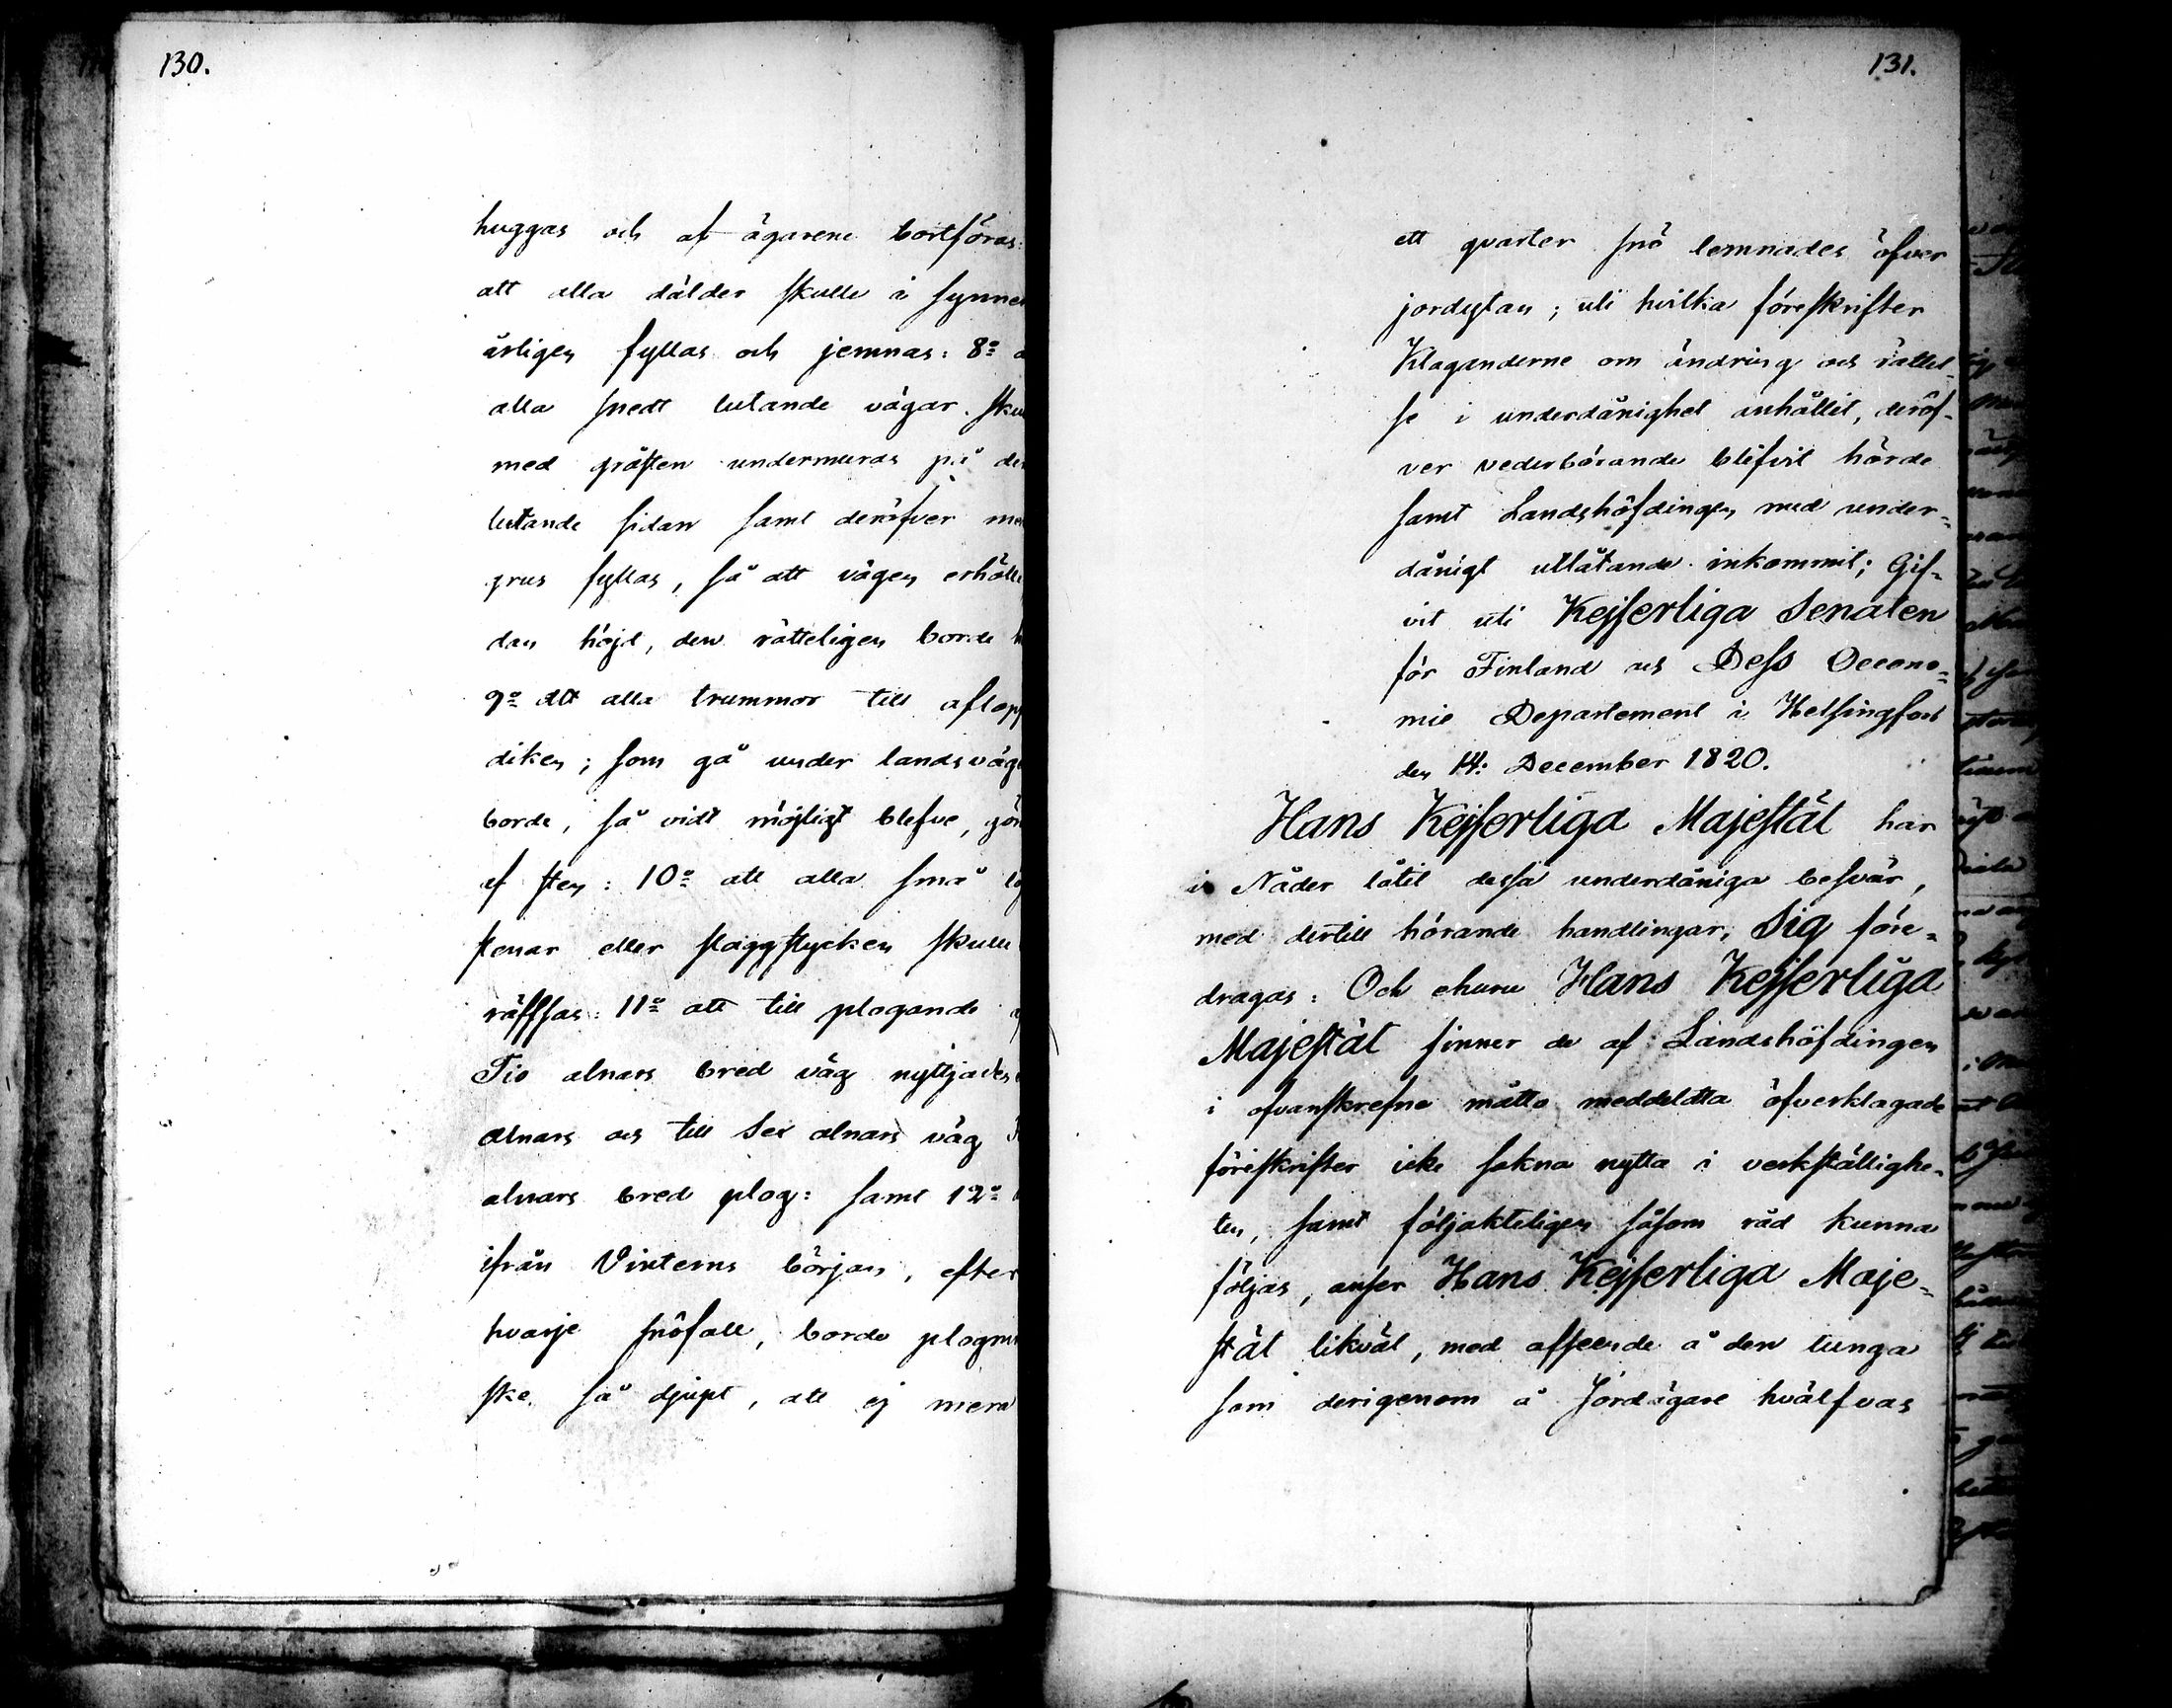 130.
huggas och af ägarene bortföras:
att alla dälder skulle i synner
årligen fyllas och jemnas: 8o a
alla snedt lutande vägar skul
med gråsten undermuras på den
lutande sidan samt deröfver med
grus fyllas, så att vägen erhölle
dan höjd, den rätteligen borde h
9o att alla trummor till aflopp
diken; som gå under landsväge
borde, så vidt möjligt blefve, gör
af sten: 10o att alla små lö
stenar eller flaggstycken skulle
räffsas: 11o att till plogande a
Tio alnars bred väg nyttjades
alnars och till Sex alnars väg
alnars bred plog: samt 12o
ifrån Vinterns början, efter
hvarje snöfall, borde plognin
ske så djupt, att ej mera
131.
ett qvarter snö lemnades öfver
jordytan; uti hvilka föreskrifter
Klaganderne om ändring och rättel-
se i underdånighet anhållit, deröf-
ver vederbörande blifvit hörde
samt Landshöfdingen med under-
dånigt utlåtande inkommit; Gif-
vit uti Kejserliga Senaten
för Finland och Dess Oecono-
mie Departement i Helsingfors
den 14: December 1820.
Hans Kejserliga Majestät har
i Nåder låtit dessa underdåniga besvär,
med dertill hörande handlingar, Sig före-
dragas: Och ehuru Hans Kejserliga
Majestät finner de af Landshöfdingen
i ofvanskrefne måtto meddelta öfverklagade
föreskrifter icke sakna nytta i verkställighe-
ten, samt följakteligen såsom råd kunna
följas, anser Hans Kejserliga Maje-
stät likväl, med afseende å den tunga
som derigenom å Jordägare hvälfvas